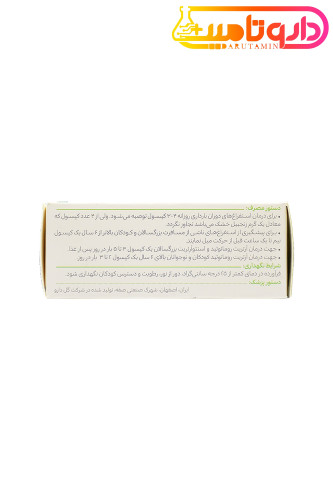 داروتامین
DARUTAMIN
دستور مصرف:
• برای درمان استفراغ‌های دوران بارداری روزانه ۴-۲ کپسول توصیه می‌شود. ولی از ۴ عدد کپسول که
معادل یک گرم زنجبیل خشک می‌باشد تجاوز نگردد.
• برای پیشگیری از استفراغ‌های ناشی از مسافرت بزرگسالان و کودکان بالاتر از ۶ سال یک کپسول
نیم تا یک ساعت قبل از حرکت میل نمایند.
• جهت درمان آرتریت روماتوئید و استئوآرتریت بزرگسالان یک کپسول ۴ تا ۵ بار در روز پس از غذا.
• جهت درمان آرتریت روماتوئید کودکان و نوجوانان بالای ۶ سال یک کپسول ۲ تا ۳ بار در روز.
شرایط نگهداری:
فرآورده در دمای کمتر از ۲۵ درجه سانتی‌گراد، دور از نور، رطوبت و دسترس کودکان نگهداری شود.
دستور پزشک:
ایران، اصفهان، شهرک صنعتی مبارکه، تولید شده در شرکت گل دارو